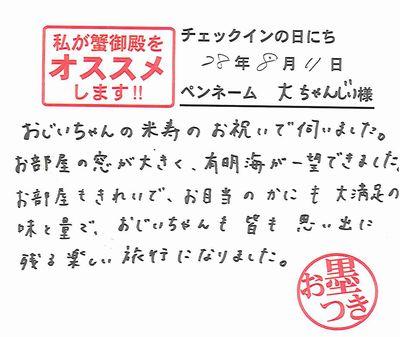 私が蟹御殿を
オススメ
します!!
チェックインの日にち
28年8月11日
ペンネーム 大ちゃんじい様
おじいちゃんの米寿のお祝いで伺いました。
お部屋の窓が大きく、有明海が一望できました。
お部屋もきれいで、お目当のかにも大満足の
味と量で、おじいちゃんも皆も思い出に
残る楽しい旅行になりました。
お墨
つき